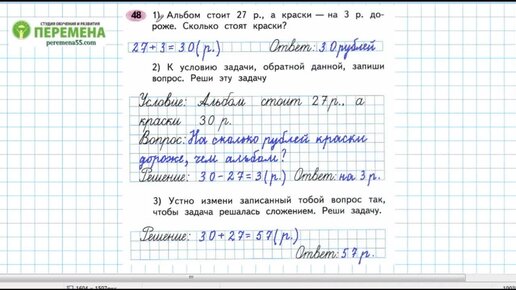 СТУДИЯ ОБУЧЕНИЯ И РАЗВИТИЯ
ПЕРЕМЕНА
peremena55.com
48 1) Альбом стоит 27 р., а краски — на 3 р. до-
роже. Сколько стоят краски?
27+3=30(р.) Ответ: 30 рублей
2) К условию задачи, обратной данной, запиши
вопрос. Реши эту задачу
Условие: Альбом стоит 27 р., а
краски 30 р.
Вопрос: На сколько рублей краски
дороже, чем альбом?
Решение: 30-27=3(р.) Ответ: на 3 р.
3) Устно измени записанный тобой вопрос так,
чтобы задача решалась сложением. Реши задачу.
Решение: 30+27=57(р.)
Ответ: 57 р.